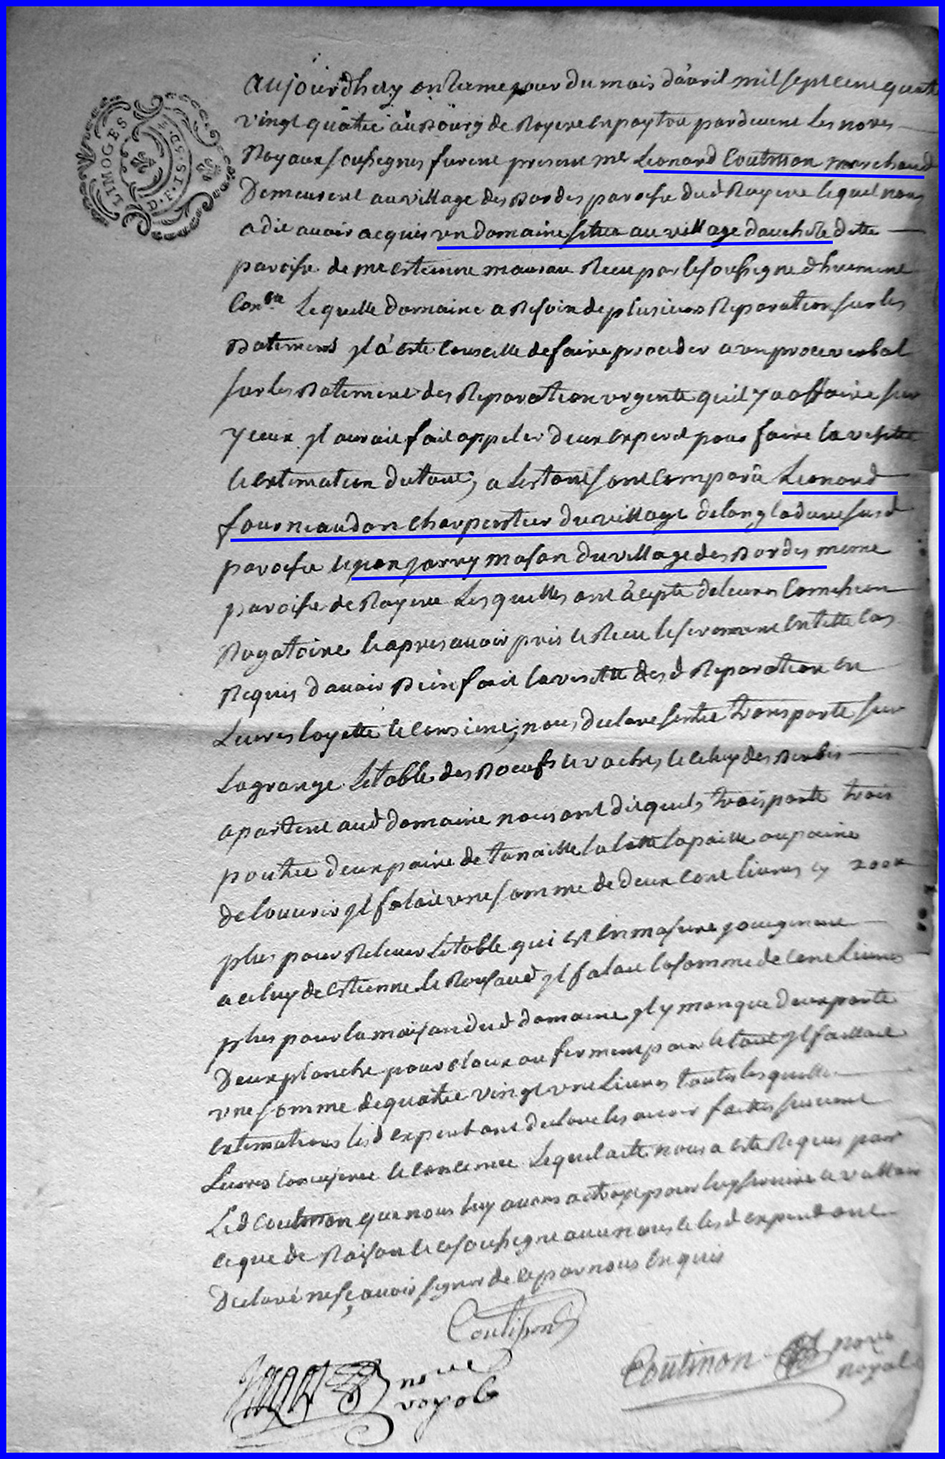 LIMOGES
G. P. E. S. T.
aujourdhuy onzieme jour du mois davril mil sept cent quatre
vingt quatre au Bourg de Royere en poytou pardevent Les nores
Royaux soussignes furent present me Leonard Coutisson marchand
Demeurent au village des Bordes paroisse dud Royere lequel nous
a dit avoir acquis un domaine situe au village dauchise dette
paroisse de me Estienne Receu par le soussigne dhuement
Con.lle Le quelle domaine a Besoin de plusieurs Reparation sur les
Batiment yl a este Conseille de faire proceder a un proces verbal
sur les Batiment des Reparation urgente quil y a affaire sur
yceux yl aurait fait appeler deux expert pour faire la visitte
le extimation du tout; a L'estant sont Comparu Leonard
fourneaudon Charpentier du village de langladure susd
paroisse le Jarry mason du village des Bordes meme
paroisse de Royere Lesquelles ont acepte de leurs Comission
Rogatoire le apres avoir pris le Receu le serement en telle Cas
Requis d'avoir Bien fait la visitte des d Reparation en
Leurs loyette le Consiene; nous declare sertre transporte sur
La grange Letable des Boeufs le vaches le celuy des Brebis
apartenent aud domaine nous ont dit quels trois porte trois
poutre deux paire de tenaille la latte la paille ou paine
de louvrir yl falait une somme de deux Cent livres cy 200#
plus pour Relever Letable qui est en masure jouigment
a celuy de Estienne le Rousaud yl falait la somme de Cent Livres
plus pour la maison dud domaine yl y manque deux porte
Deux planche pour clouer au ferment pour le tout yl faillait
une somme de quatre vingt une Livres toutes lesquelle
extimations lesd expert ont declare les avoir faittes suivent
Leures le Consience Lequel acte nous a este Requis par
Led Coutisson que nous luy avons actroye pour luy servire a valloir
le que de Raison le a soussigne avec nous le lesd expert ont
Declaré ne sçavoir signer de ce par nous Enquis
Coutisson
Coutisson nore
royal
nore
royal